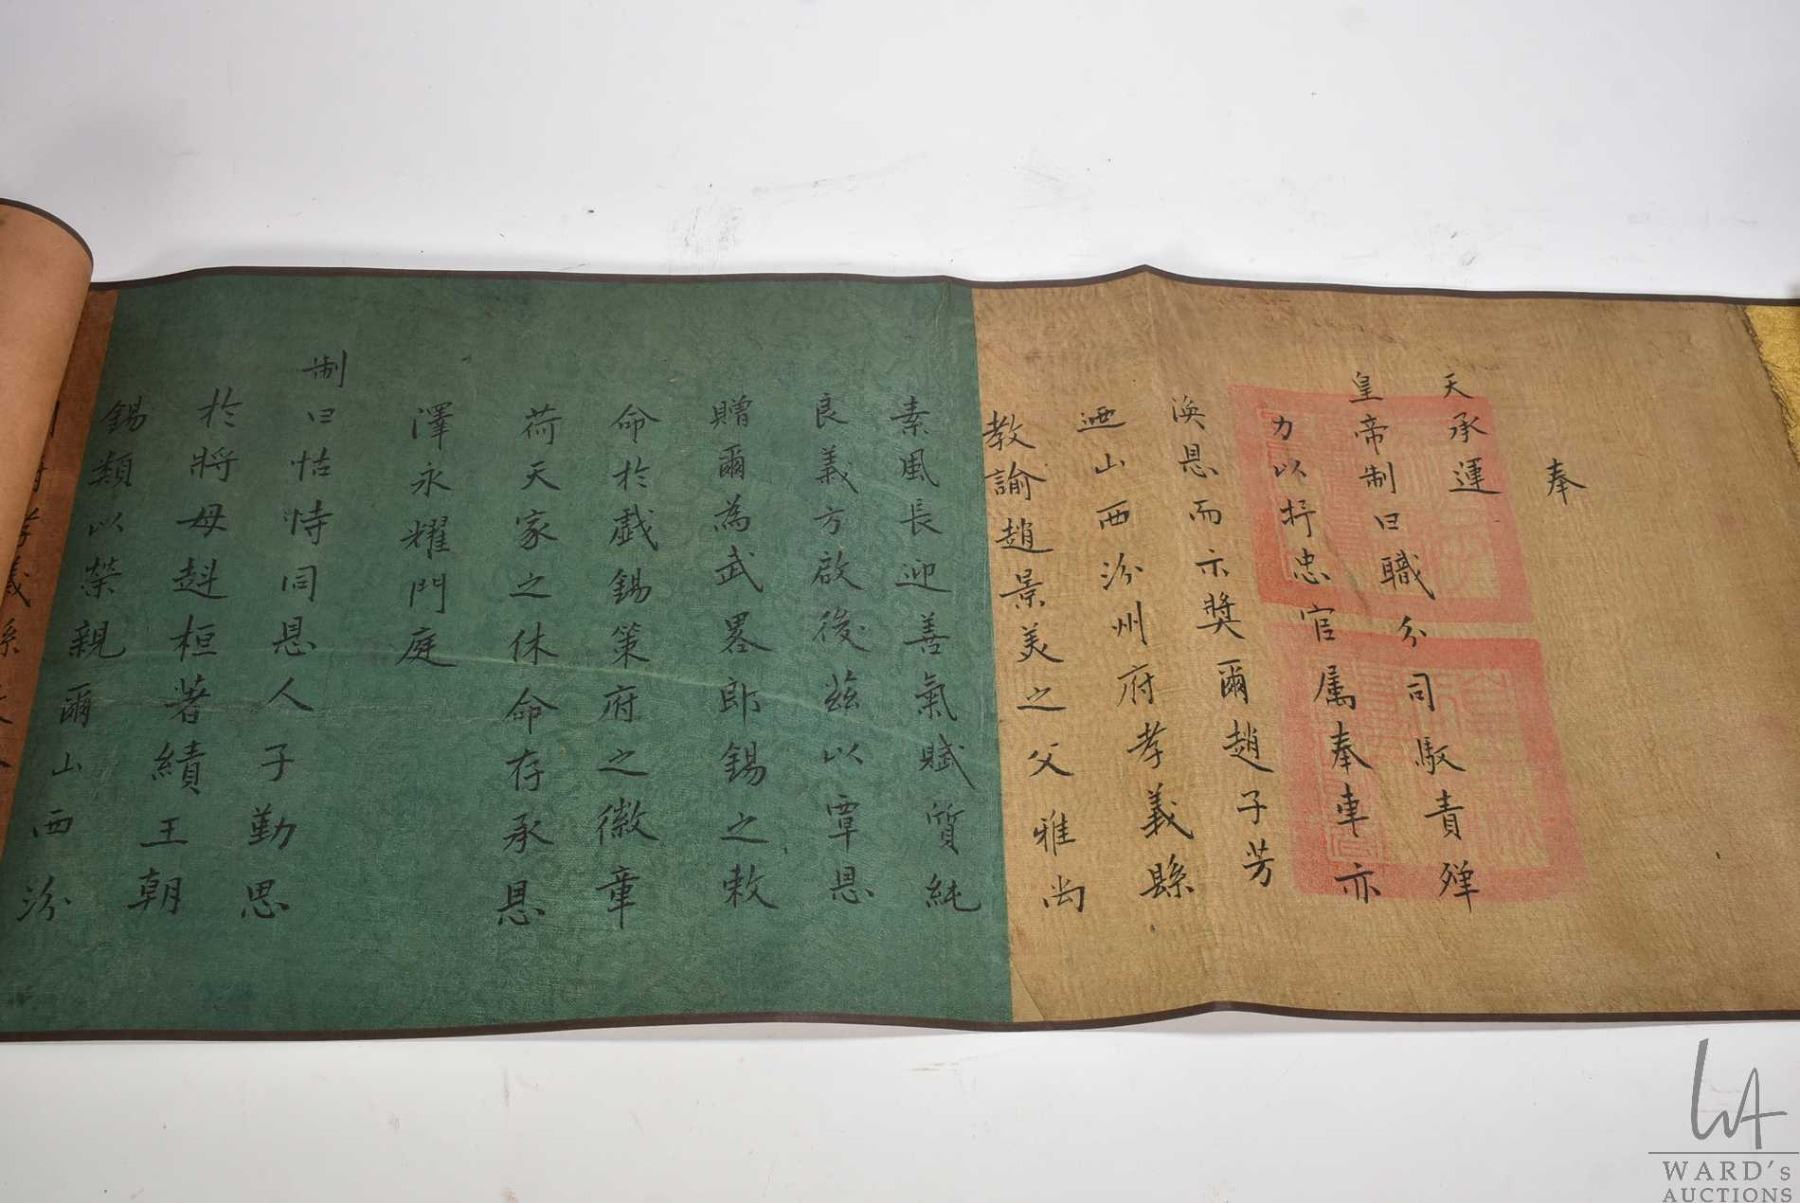 奉
天承運
皇帝制曰職分司馭責殫
力以抒忠官属奉車亦
渙恩而示奬爾趙子芳
迺山西汾州府孝義縣
教諭趙景美之父雅尚
素風長迎善氣賦質純
良義方啟後茲以覃恩
贈爾為武畧郎錫之敕
命於戲錫策府之徽章
荷天家之休命存承恩
澤永耀門庭
制曰怙恃同恩人子勤思
於將母赳桓著績王朝
錫類以榮親爾山西汾
WARD's
AUCTIONS